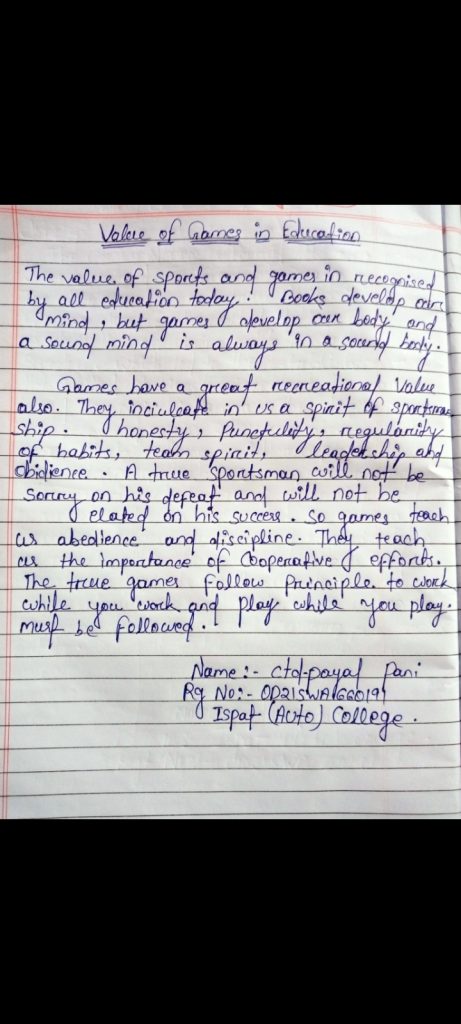 Value of Games in Education
The value, of sports and games in recognised
by all education today. Books develop our
mind, but games develop our body and
a sound mind is always in a sound body.
Games have a great recreational Value
also. They inciulcate in us a spirit of sportsman
ship. honesty, Punctulity, regularity
of habits, team spirit, leadership and
obidience. A true sportsman will not be
sorry on his defeat and will not be
elated on his success. So games teach
us abedience and discipline. They teach
us the importance of Cooperative efforts.
The true games follow Principle. to work
while you work and play while you play.
must be followed.
Name :- ctd-payal Pani
Rg No:-
Ispat (Auto) College.